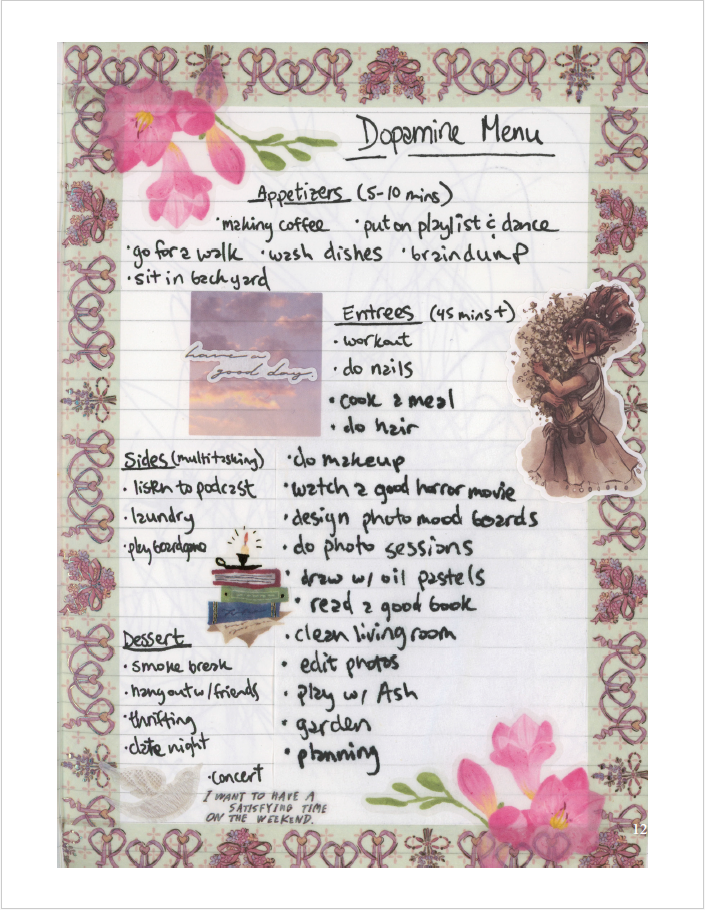 Dopamine Menu
Appetizers (5-10 mins)
• making coffee • put on playlist & dance
• go for a walk • wash dishes • braindump
• sit in backyard
have a
good day.
Entrees (45 mins+)
• workout
• do nails
• cook a meal
• do hair
• do makeup
• watch a good horror movie
• design photo mood boards
• do photo sessions
• draw w/ oil pastels
• read a good book
• clean living room
• edit photos
• play w/ Ash
• garden
• planning
Sides (multitasking)
• listen to podcast
• laundry
• play boardgame
Dessert
• smoke break
• hang out w/ friends
• thrifting
• date night
• concert
I WANT TO HAVE A
SATISFYING TIME
ON THE WEEKEND.
12